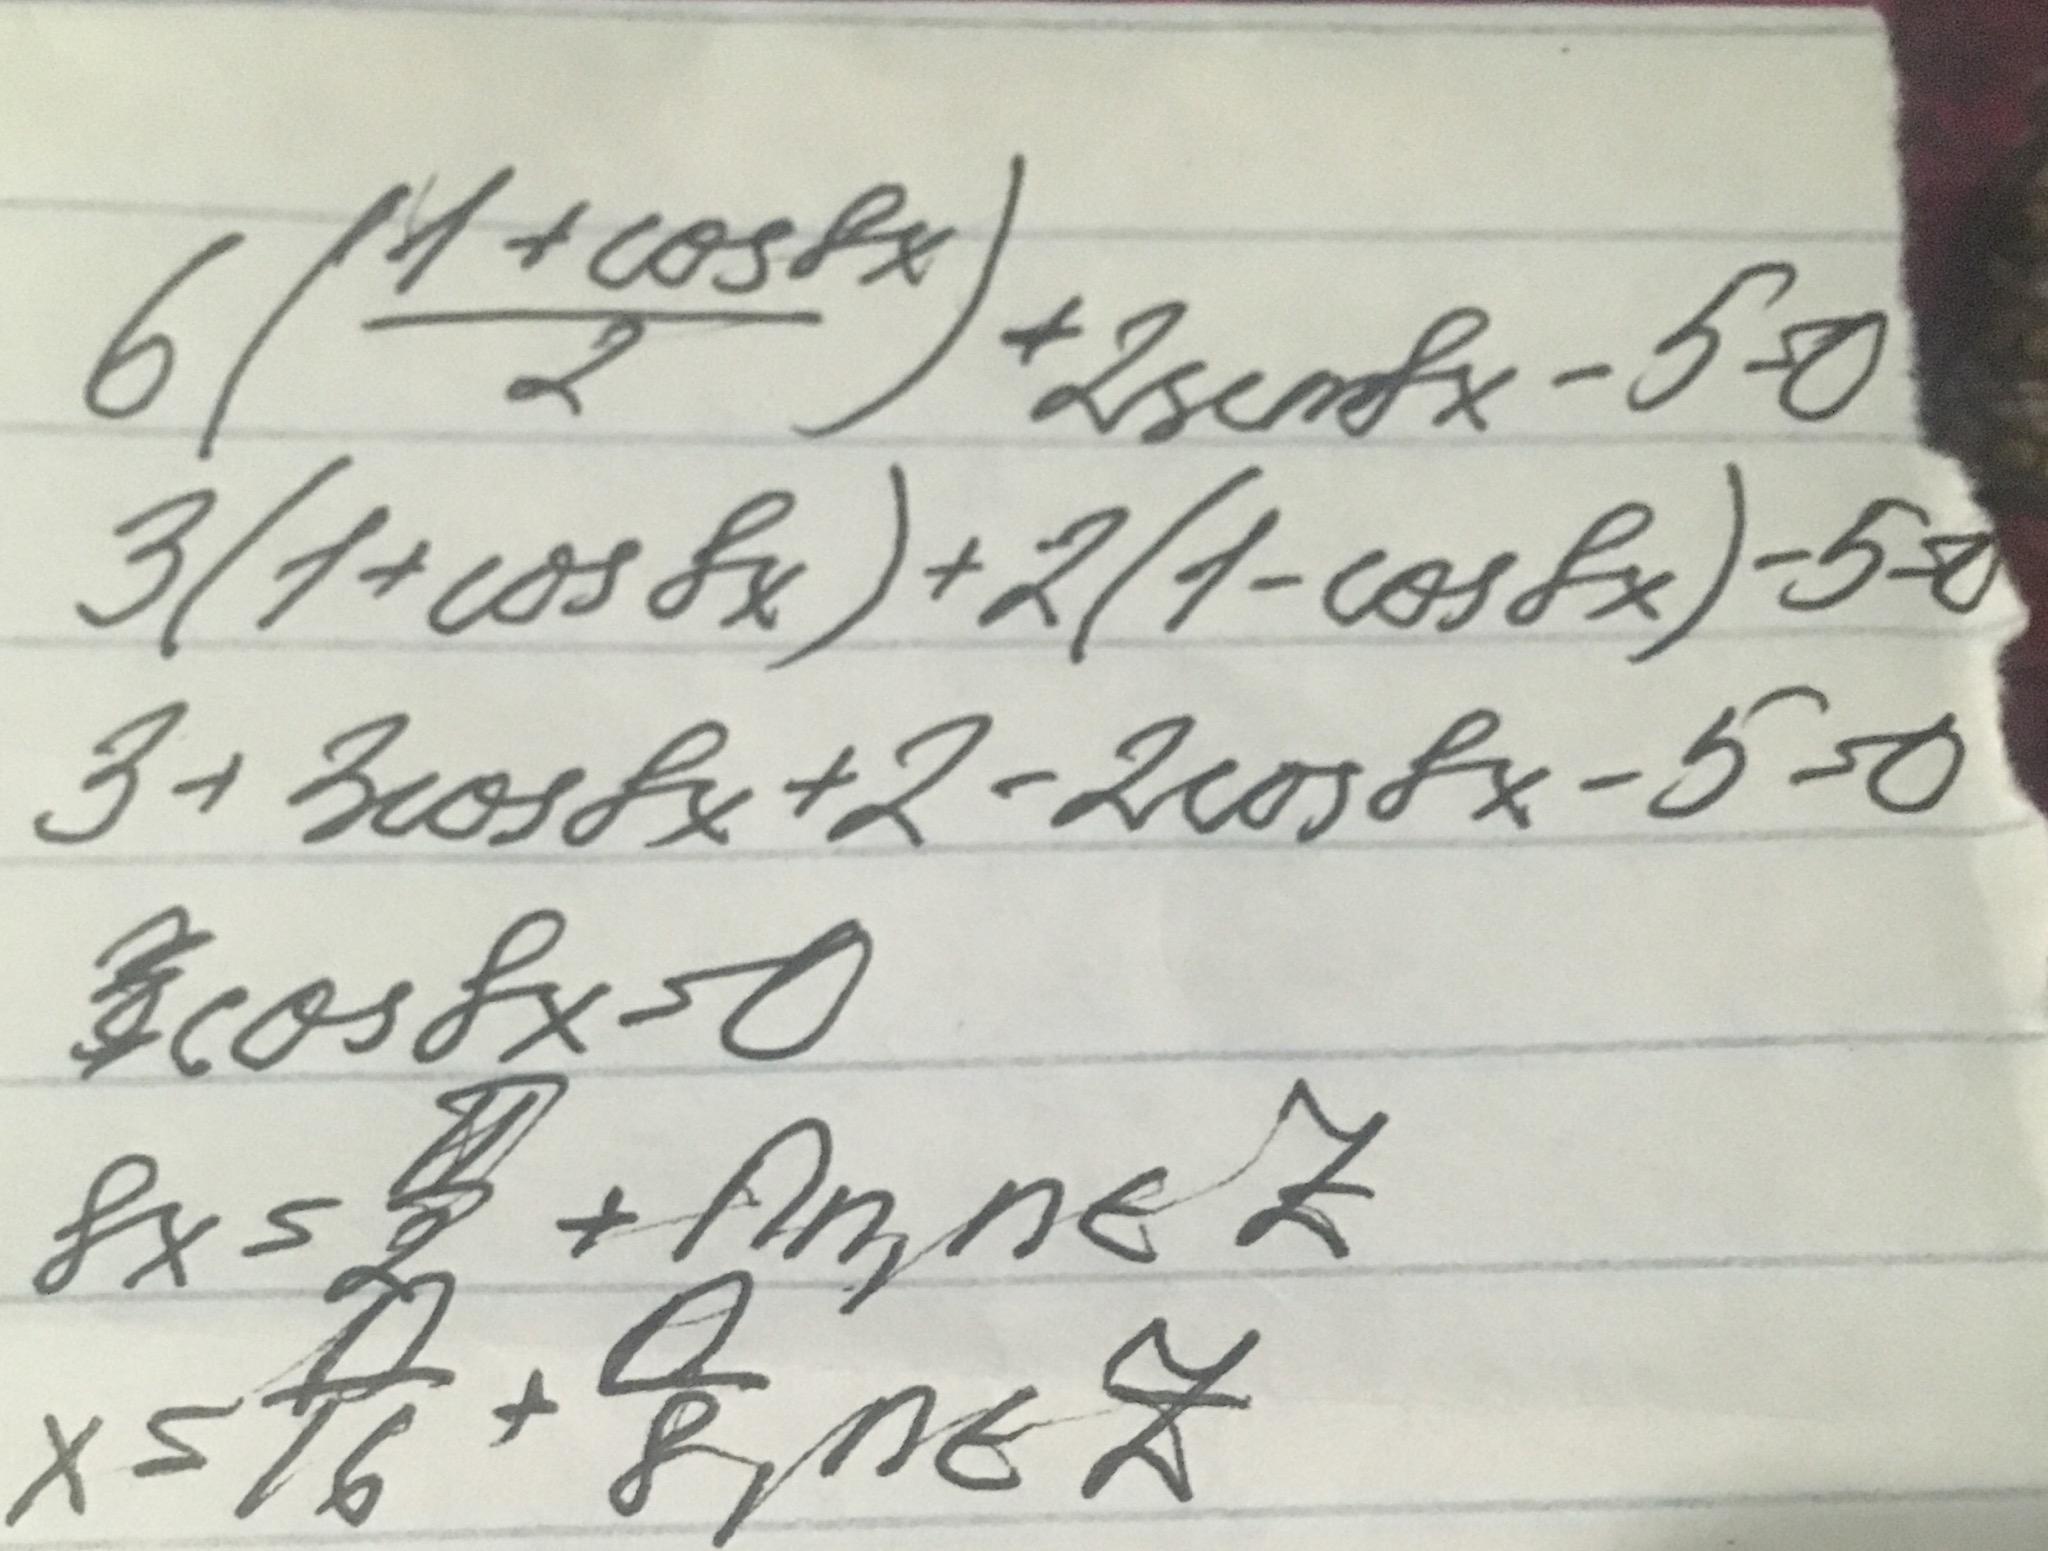 6((1+cos8x)/2)+2sin8x-5=0
3(1+cos8x)+2(1-cos8x)-5=0
3+3cos8x+2-2cos8x-5=0
cos8x=0
8x=π/2+πn,n∈Z
x=π/16+π/8,n∈Z